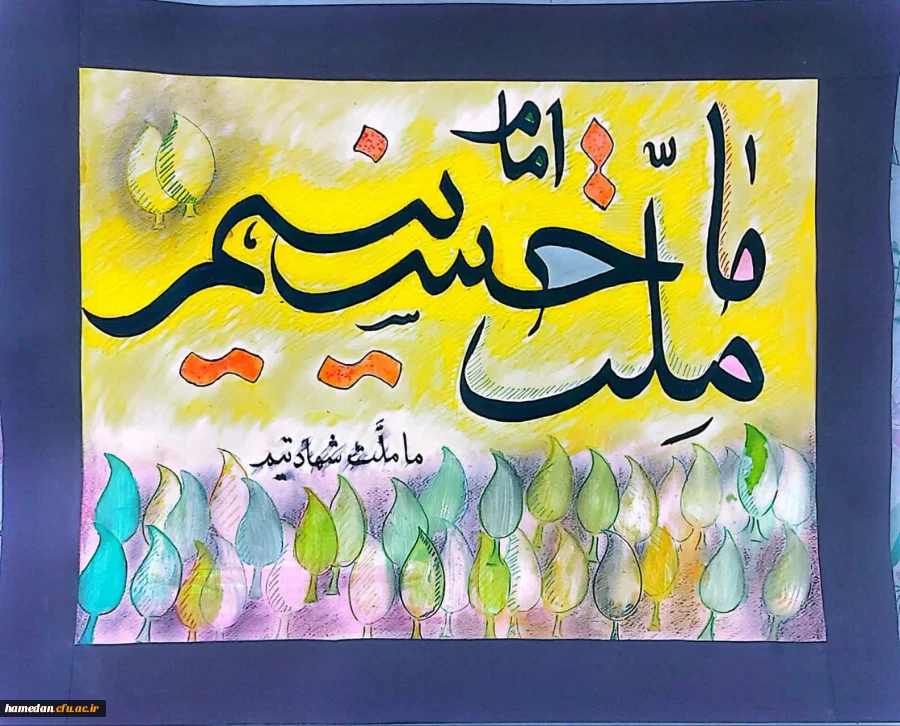 ما ملّت امام حسینیم
ما ملَّت شهادتیم
hamedan.cfu.ac.ir